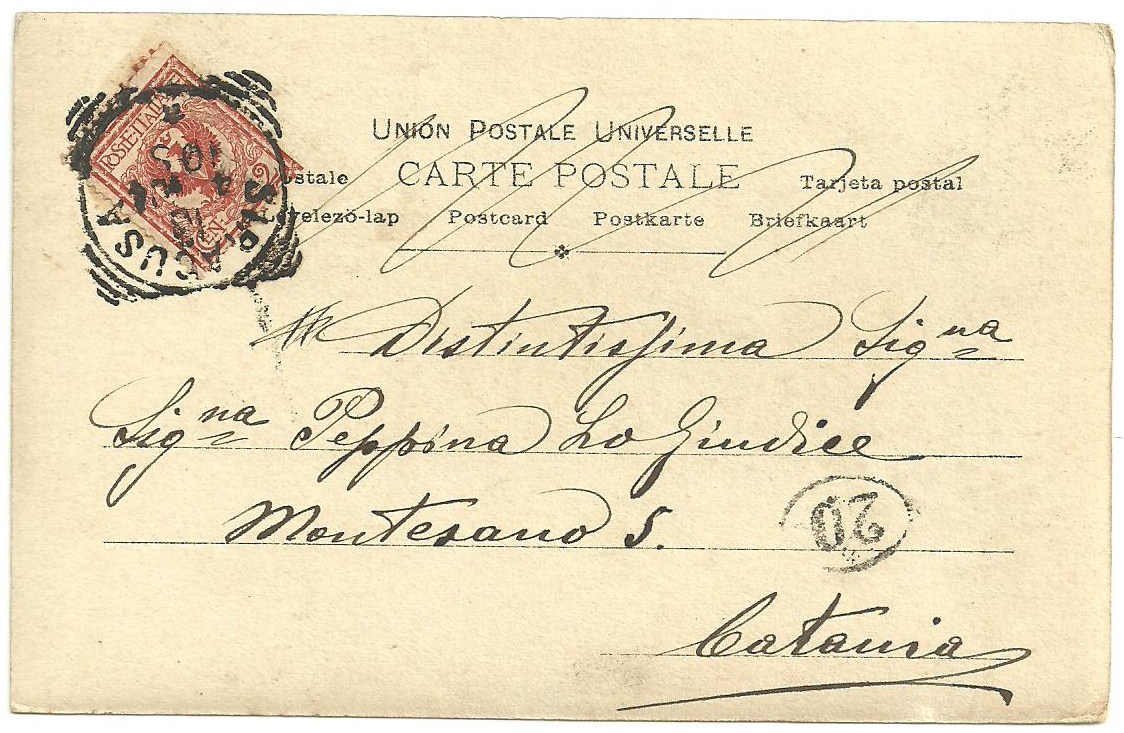 UNION POSTALE UNIVERSELLE
CARTE POSTALE
Tarjeta postal
Postcard Postkarte Briefkaart
POSTE·ITALIANE
SIRACUSA
Distintissima Sig.na
Sig.na Peppina Lo Giudice
Montesano 5.
20
Catania